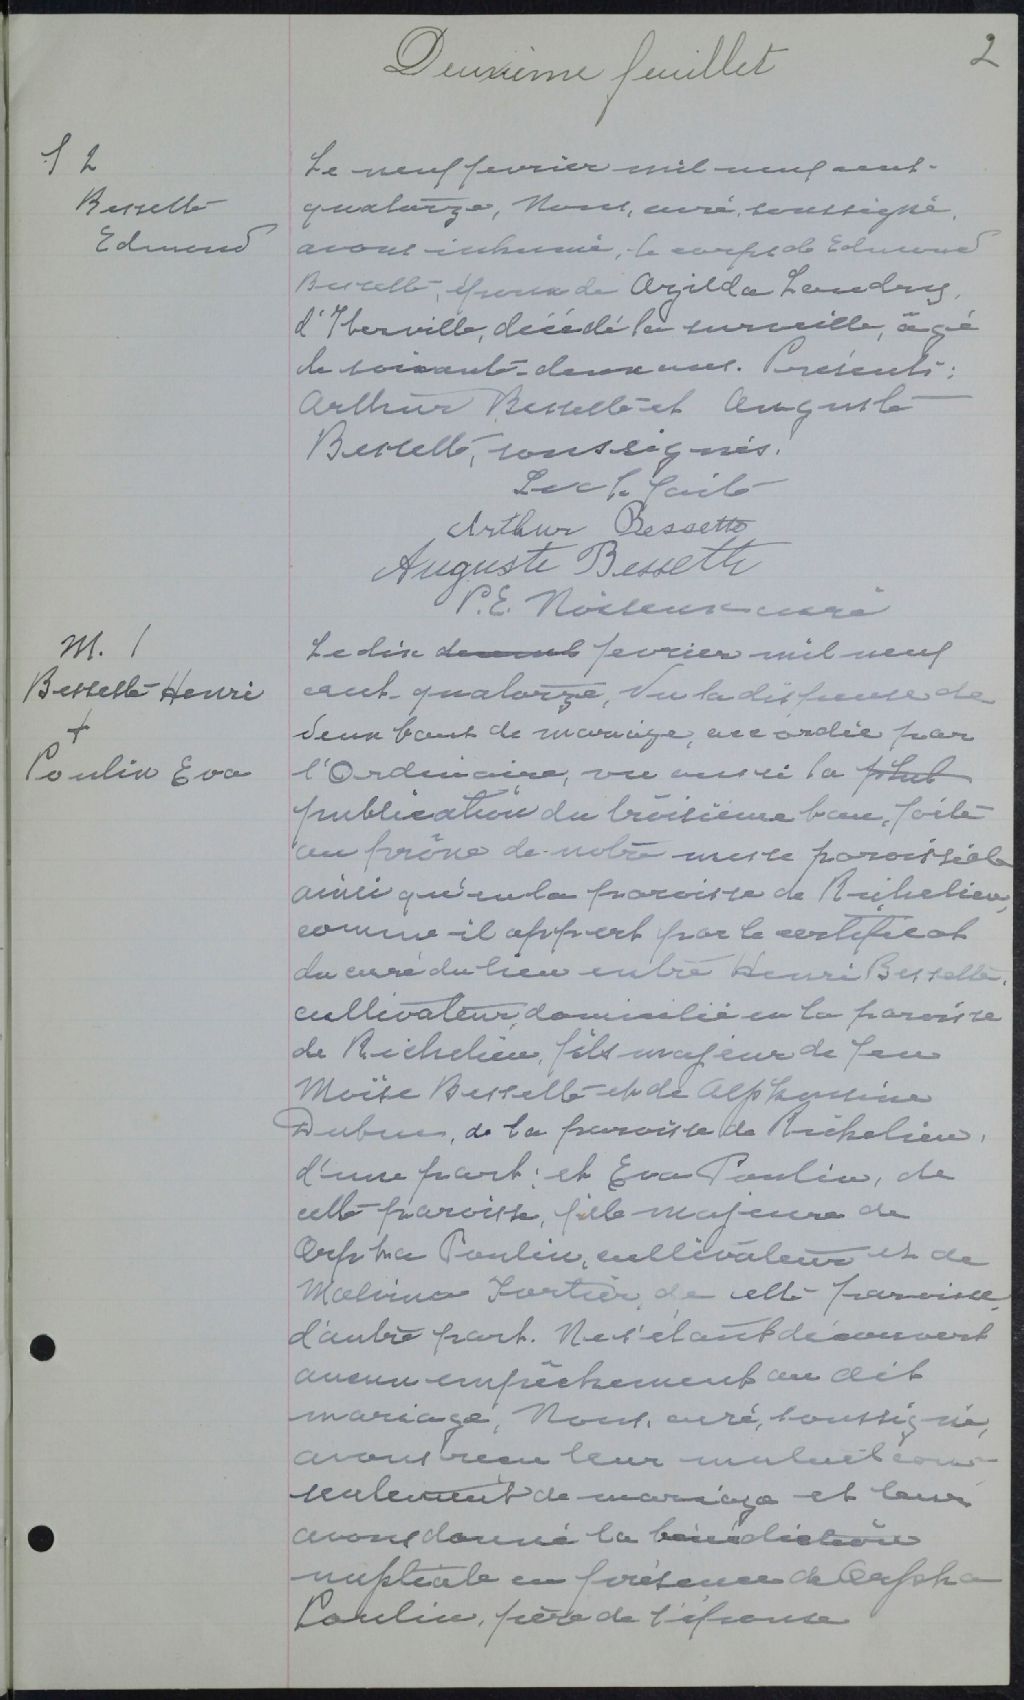 Deuxième feuillet
2
S 2
Bessette
Edmond
Le neuf fevrier mil neuf cent-
quatorze, Nous, curé, soussigné,
avons inhumé, le corps de Edmond
Bessette, époux de Azilda Landry,
d'Iberville, décédé la surveille, âgé
de soixante-deux ans. Présents:
Arthur Bessette et Auguste
Bessette, soussignés.
Arthur Bessette
Auguste Bessette
P.E. Noiseux curé
M. 1
Bessette Henri
+
Poulin Eva
Le dix fevrier mil neuf
cent-quatorze, Vu la dispense de
deux bans de mariage, accordée par
l'Ordinaire, vu aussi la
publication du troisième ban, faite
au prône de notre messe paroissiale
ainsi qu'en la paroisse de Richelieu,
comme il appert par le certificat
du curé du lieu entre Henri Bessette,
cultivateur, domicilié en la paroisse
de Richelieu, fils majeur de feu
Moïse Bessette et de Alphonsine
Dubuc, de la paroisse de Richelieu,
d'une part; et Eva Poulin, de
cette paroisse, fille majeure de
Orpha Poulin, cultivateur et de
Malvina Fortier, de cette paroisse,
d'autre part. Ne s'étant découvert
aucun empêchement au dit
mariage, Nous, curé, soussigné,
avons reçu leur mutuel con-
sentement de mariage et leur
avons donné la bénédiction
nuptiale en présence de Orpha
Poulin, père de l'épouse